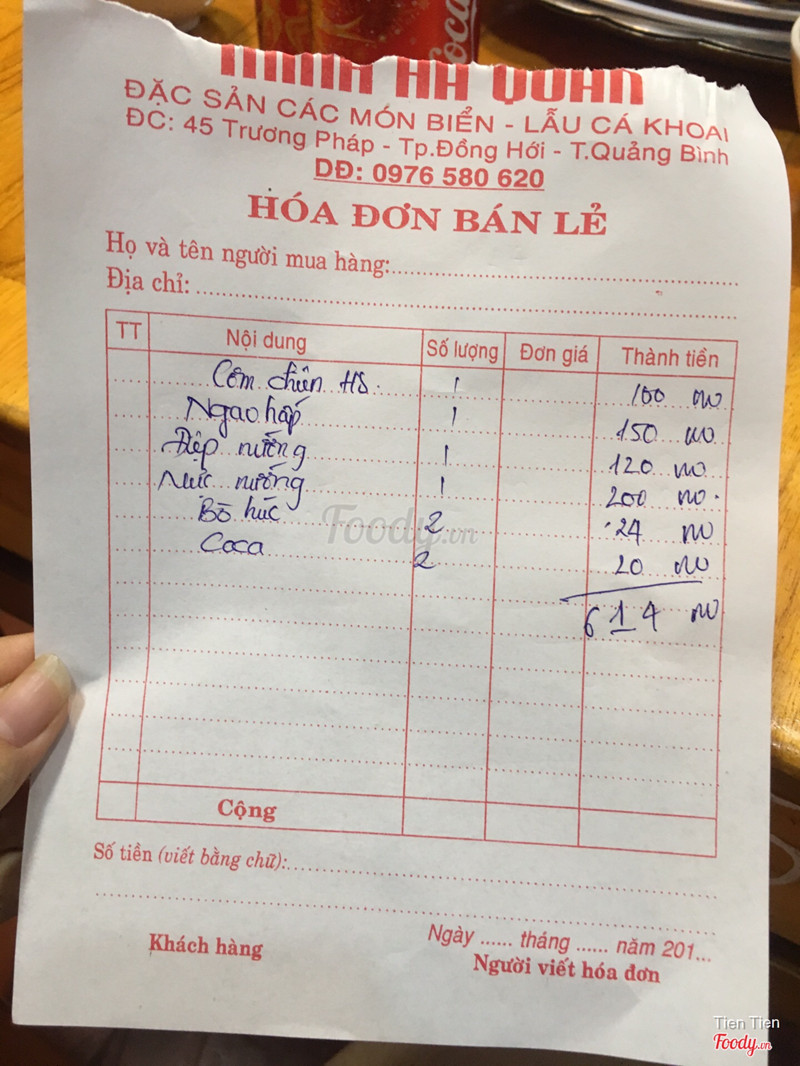 Coca
ĐẶC SẢN CÁC MÓN BIỂN - LẨU CÁ KHOAI
ĐC: 45 Trương Pháp - Tp.Đồng Hới - T.Quảng Bình
DĐ: 0976 580 620
HÓA ĐƠN BÁN LẺ
Họ và tên người mua hàng:
Địa chỉ:
TT Nội dung Số lượng Đơn giá Thành tiền
Cơm chiên HS. 1 100
Ngao hấp 1 150
Điệp nướng 1 120
Mực nướng 1 200
Bò húc 2 24
Coca 2 20
614
Foody.vn
Cộng
Số tiền (viết bằng chữ):
Ngày ...... tháng ...... năm 201...
Khách hàng Người viết hóa đơn
Tien Tien
Foody.vn